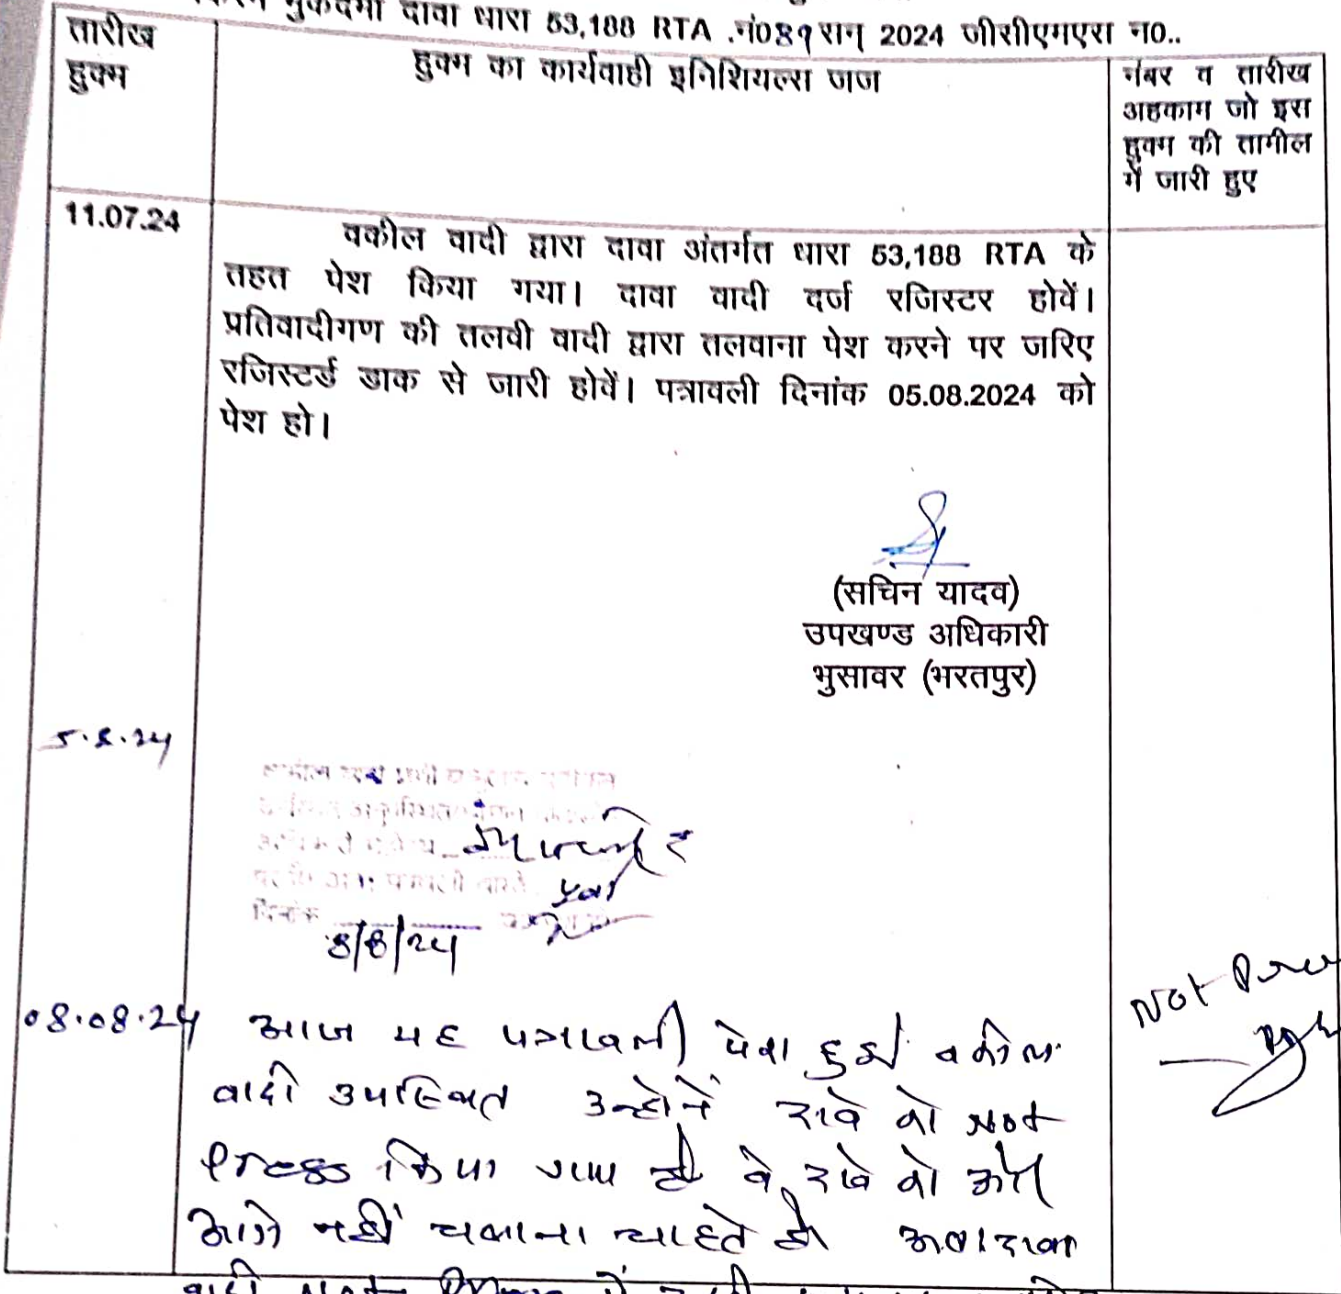 मुकदमा दावा धारा 53,188 RTA .नं089 सन् 2024 जीसीएमएस न0..
तारीख
हुक्म
हुक्म का कार्यवाही इनिशियल्स जज
नंबर व तारीख
अहकाम जो इस
हुक्म की तामील
में जारी हुए
11.07.24
वकील वादी द्वारा दावा अंतर्गत धारा 53,188 RTA के
तहत पेश किया गया। दावा वादी दर्ज रजिस्टर होवें।
प्रतिवादीगण की तलवी वादी द्वारा तलवाना पेश करने पर जरिए
रजिस्टर्ड डाक से जारी होवें। पत्रावली दिनांक 05.08.2024 को
पेश हो।
(सचिन यादव)
उपखण्ड अधिकारी
भुसावर (भरतपुर)
5.8.24
दिनांक 8/8/24
08.08.24
आज यह पत्रावली पेश हुई वकील
वादी उपस्थित उन्होनें दावे को Not
Press किया गया है वे दावे को और
आगे नहीं चलाना चाहते है
Not